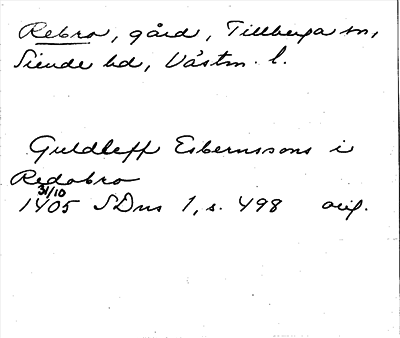 Rebro, gård, Tillberga sn,
Siende hd, Västm. l.
Guldleff Esbernssons i
Redobro
31/10
1405 SDns 1, s. 498 orig.